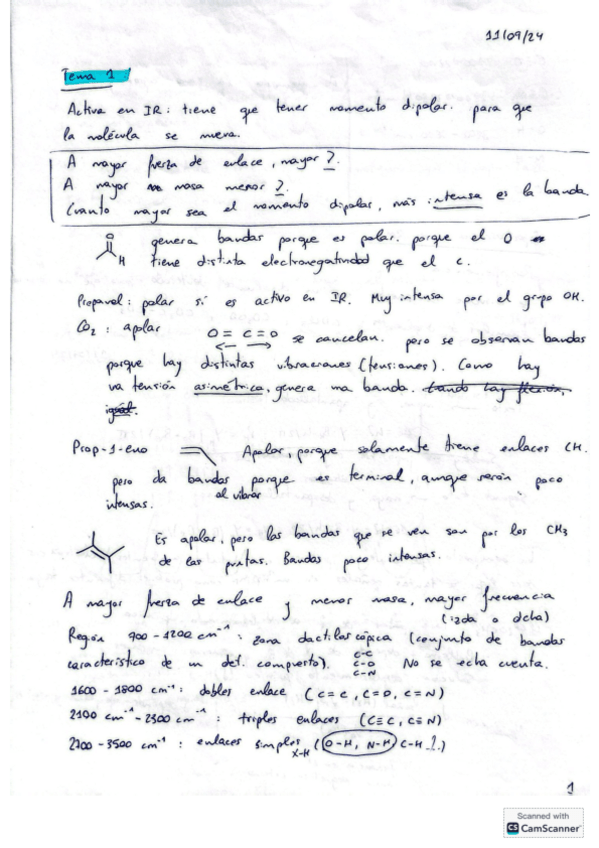 11/09/24
Tema 1
Activa en IR: tiene que tener momento dipolar. para que
la molécula se mueva.
A mayor fuerza de enlace, mayor ν̄.
A mayor masa menor ν̄.
Cuanto mayor sea el momento dipolar, más intensa es la banda
O
H
genera bandas porque es polar. porque el O
tiene distinta electronegatividad que el C.
Propanol: polar sí es activo en IR. Muy intensa por el grupo OH.
CO2: apolar O=C=O se cancelan. pero se observan bandas
porque hay distintas vibraciones (tensiones). Como hay
una tensión asimétrica, genera una banda. Cuando hay flexión,
igual.
Prop-1-eno Apolar, porque solamente tiene enlaces CH.
pero da bandas porque es terminal, aunque serán poco
al vibrar
intensas.
Es apolar, pero las bandas que se ven son por los CH3
de las puntas. Bandas poco intensas.
A mayor fuerza de enlace y menor masa, mayor frecuencia
(izda o dcha)
Región 900-1200 cm-1: zona dactiloscópica (conjunto de bandas
característico de un det. compuesto). C-C C-O C-N No se echa cuenta.
1600 - 1800 cm-1: dobles enlace (C=C, C=O, C=N)
2100 cm-1 - 2300 cm-1: triples enlaces (C≡C, C≡N)
2700 - 3500 cm-1: enlaces simples X-H (O-H, N-H C-H )
1
Scanned with
CS CamScanner